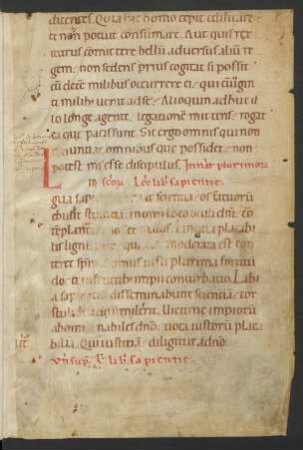 dicentes. Quia hic homo cepit edificare
et non potuit consummare. Aut quis rex
iturus committere bellu adversus aliu re
gem. non sedens prius cogitat si possit
cu dece milibus occurrere ei. qui cu vigin
ti milib; venit ad se. Alioquin adhuc il
lo longe agente. legatione mittens. rogat
ea que pacis sunt. Sic ergo omnis qui non
renuntiat omnibus que possidet. non
potest m's esse discipulus. In nat plurimor
scor. Lec lib sapientie.
gua sap scientia. os fatuoru
ebullit stultitia. In omni loco oculi dni con
teplant Lingua placabi
lis lignu que immoderata est con
teret spm. Domus iusti plurima fortitu
do. et in fructib; impii conturbatio. Labi
a sapientiu disseminabunt scientia. cor
stultoru dissimile erit. Victime impioru
abominabiles dno. vota iustoru placa
bilia. Qui iustitia diligitur a dno.
lib sapientie.